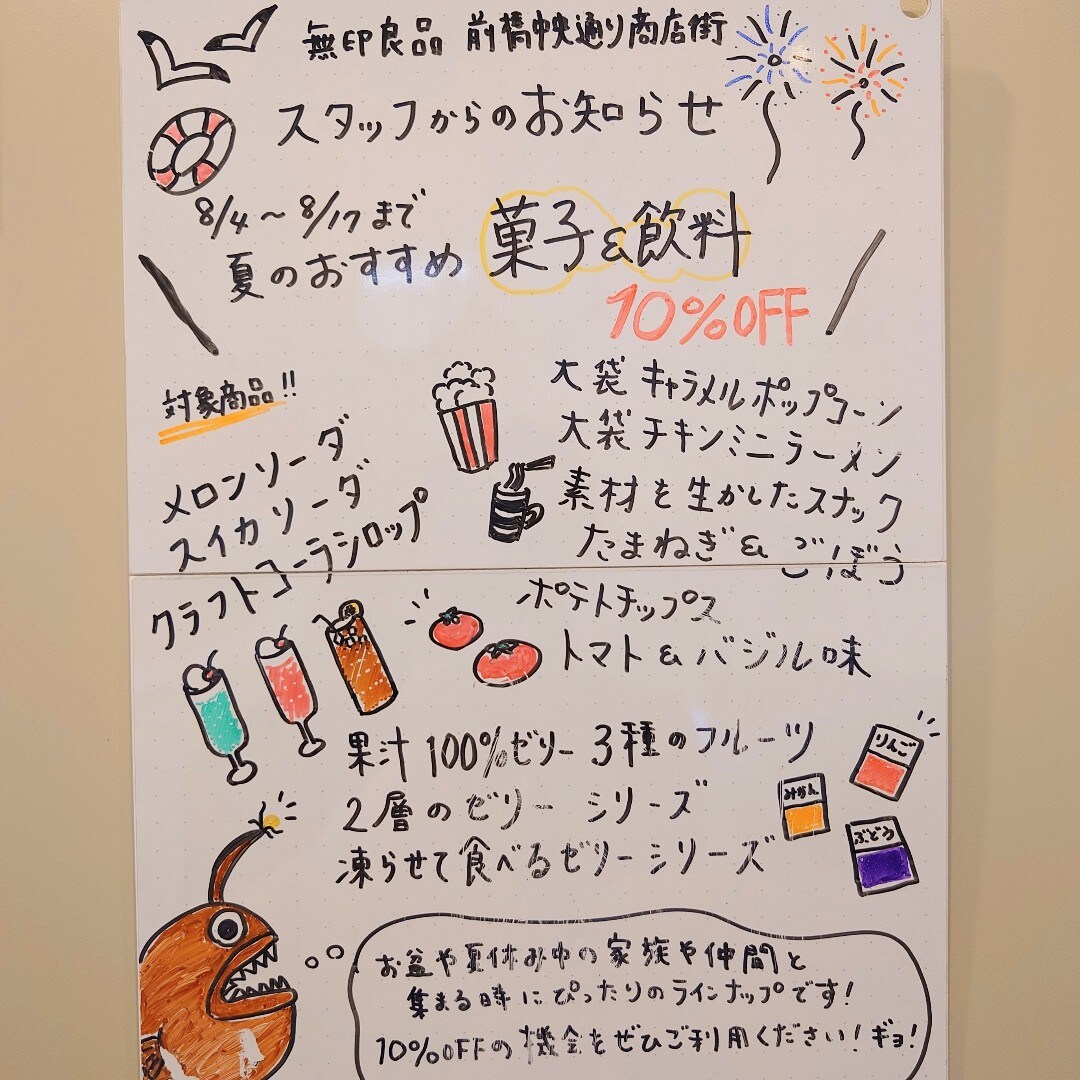 無印良品 前橋中央通り商店街
スタッフからのお知らせ
8/4〜8/17まで
夏のおすすめ 菓子&飲料
10%OFF
対象商品!!
メロンソーダ
スイカソーダ
クラフトコーラシロップ
大袋 キャラメルポップコーン
大袋 チキンミニラーメン
素材を生かしたスナック
たまねぎ & ごぼう
ポテトチップス
トマト & バジル味
果汁100%ゼリー 3種のフルーツ
2層のゼリー シリーズ
凍らせて食べるゼリーシリーズ
りんご
みかん
ぶどう
お盆や夏休み中の家族や仲間と
集まる時にぴったりのラインナップです!
10%OFFの機会をぜひご利用ください!ギョ!